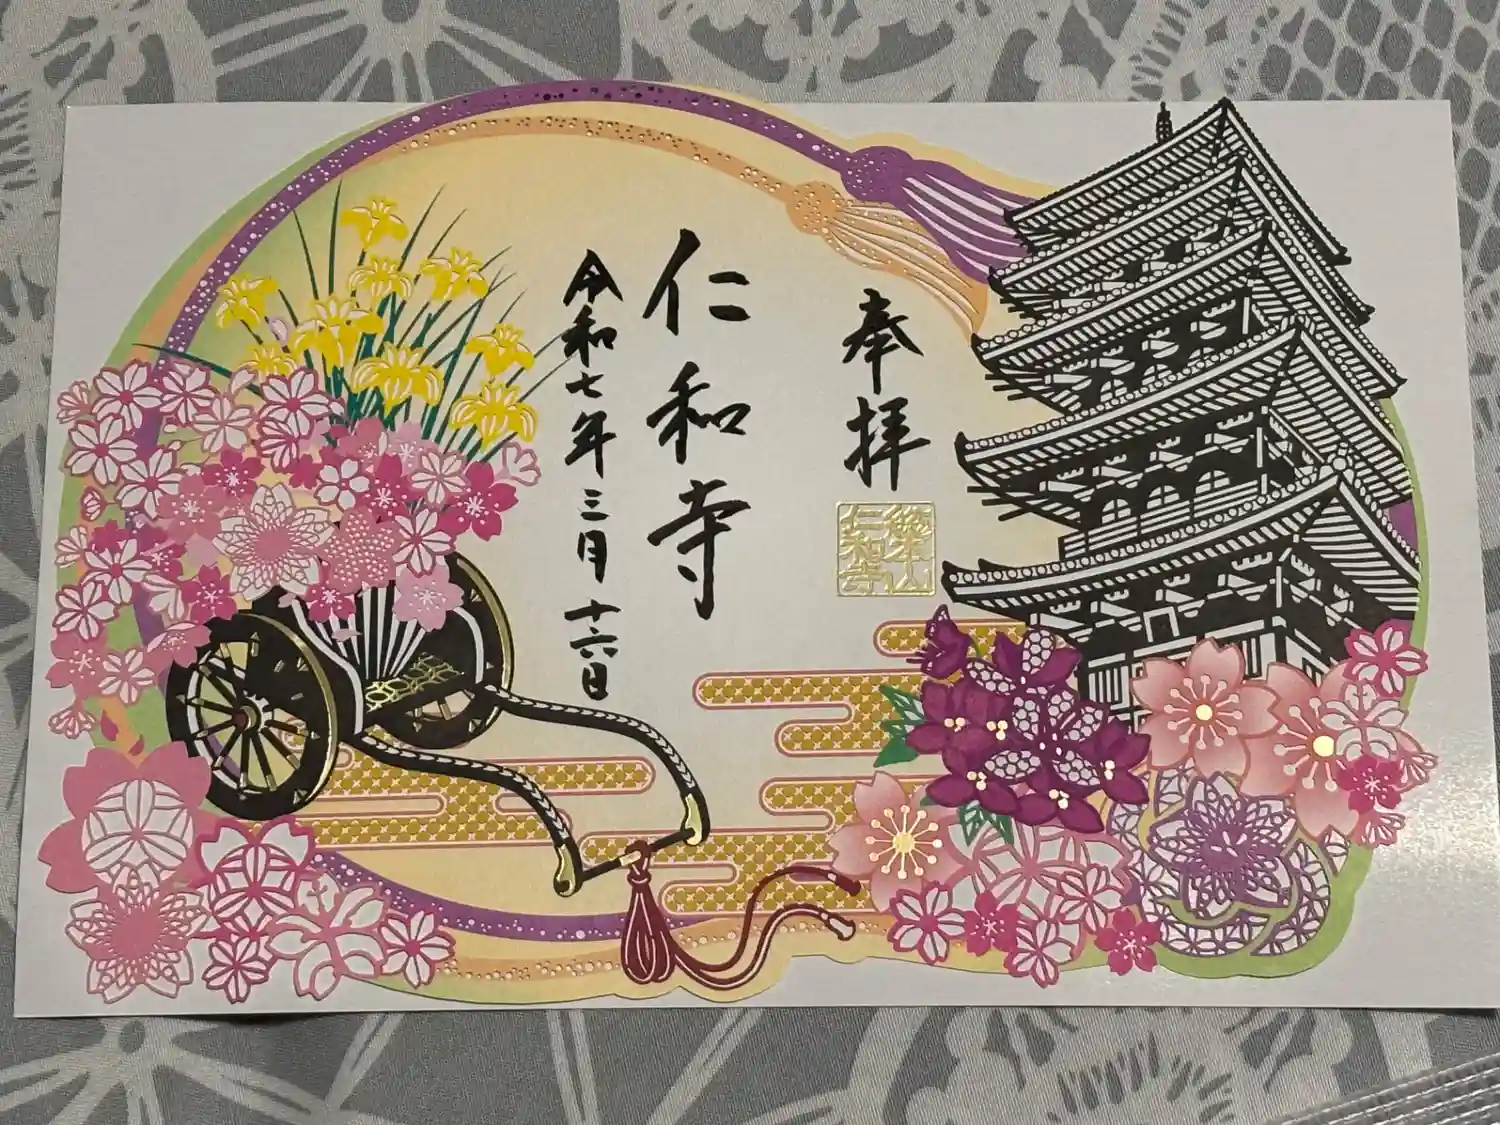 奉拝
仁和寺
令和七年三月十六日
仁和寺